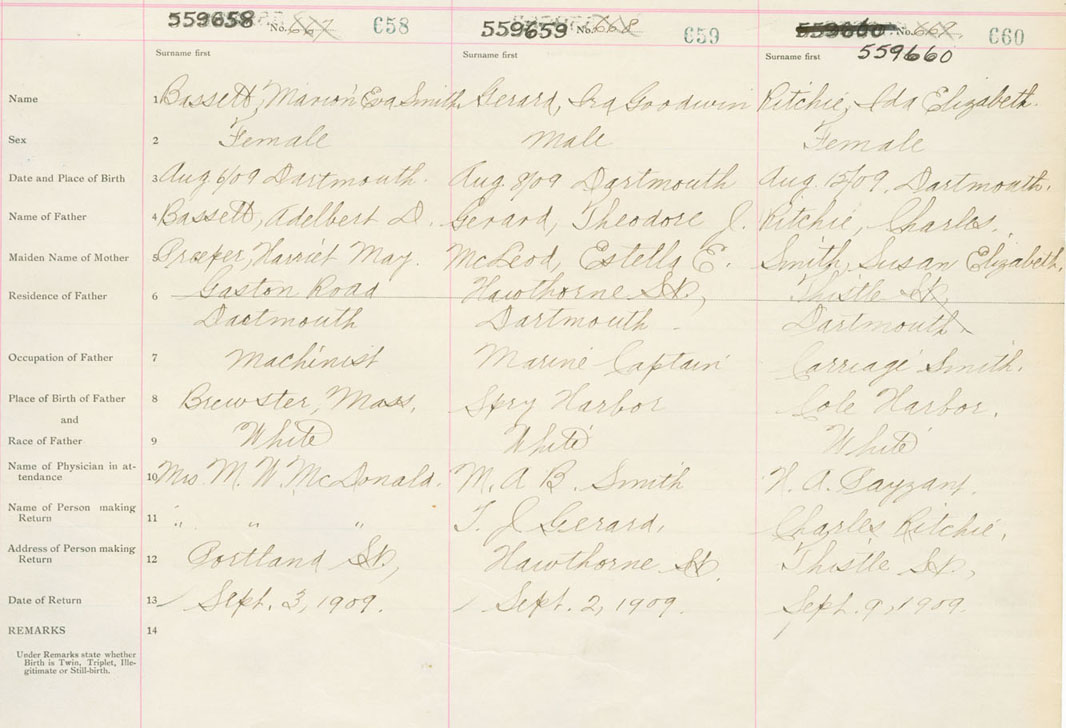 559658 No. 667 658 559659 No. 668 659 559660 No. 669 660
559660
Surname first Surname first Surname first
Name 1 Bassett, Marion Eva Smith Gerard, Ira Goodwin Ritchie, Ida Elizabeth.
Sex 2 Female Male Female
Date and Place of Birth 3 Aug 6/09 Dartmouth. Aug 8/09 Dartmouth Aug. 12/09. Dartmouth.
Name of Father 4 Bassett, Adelbert D. Gerard, Theodore J. Ritchie, Charles.
Maiden Name of Mother 5 Harriet May. McLeod, Estella E. Smith, Susan Elizabeth.
Residence of Father 6 Gaston Road Hawthorne St., Thistle St.
Dartmouth Dartmouth Dartmouth
Occupation of Father 7 Machinist Marine Captain Carriage Smith.
Place of Birth of Father 8 Brewster, Mass. Spry Harbor Cole Harbor.
and
Race of Father 9 White White White
Name of Physician in at-
tendance 10 Mrs. M. W. McDonald. M. A. B. Smith H. A. Payzant.
Name of Person making
Return 11 " " " T. J. Gerard. Charles Ritchie.
Address of Person making
Return 12 Portland St., Hawthorne St. Thistle St.,
Date of Return 13 Sept. 3, 1909. Sept. 2, 1909. Sept. 9, 1909.
REMARKS 14
Under Remarks state whether
Birth is Twin, Triplet, Ille-
gitimate or Still-birth.